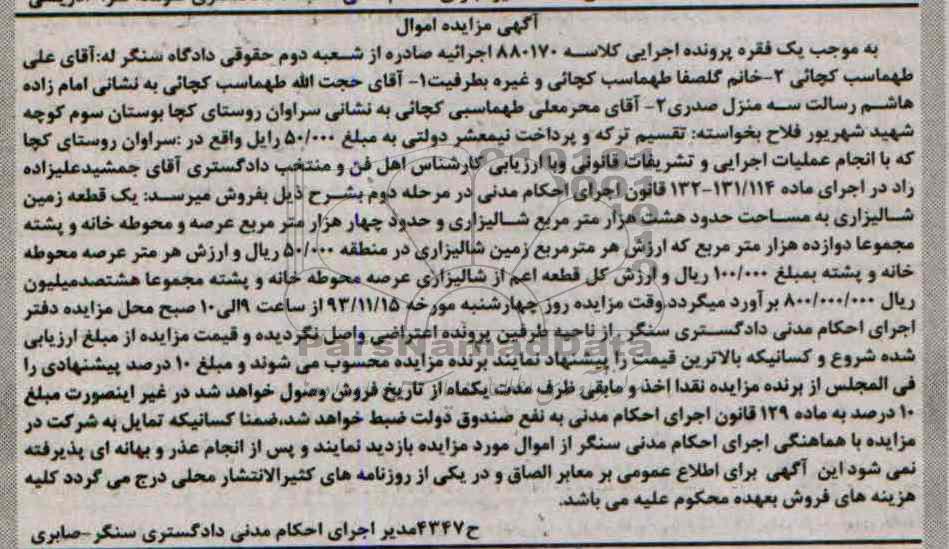 آگهی مزایده اموال
به موجب یک فقره پرونده اجرایی کلاسه ۸۸۰۱۷۰ اجرائیه صادره از شعبه دوم حقوقی دادگاه سنگر له:آقای علی
طهماسب کچائی ۲-خانم گلصفا طهماسب کچائی و غیره بطرفیت۱- آقای حجت الله طهماسب کچائی به نشانی امام زاده
هاشم رسالت سه منزل صدری۲- آقای محرمعلی طهماسبی کچائی به نشانی سراوان روستای کچا بوستان سوم کوچه
شهید شهریور فلاح بخواسته: تقسیم ترکه و پرداخت نیمعشر دولتی به مبلغ ۵۰/۰۰۰ رایل واقع در :سراوان روستای کچا
که با انجام عملیات اجرایی و تشریفات قانونی وبا ارزیابی کارشناس اهل فن و منتخب دادگستری آقای جمشیدعلیزاده
راد در اجرای ماده ۱۳۱/۱۱۴-۱۳۲ قانون اجرای احکام مدنی در مرحله دوم بشرح ذیل بفروش میرسد: یک قطعه زمین
شالیزاری به مساحت حدود هشت هزار متر مربع شالیزاری و حدود چهار هزار متر مربع عرصه و محوطه خانه و پشته
مجموعا دوازده هزار متر مربع که ارزش هر مترمربع زمین شالیزاری در منطقه ۵۰/۰۰۰ ریال و ارزش هر متر عرصه محوطه
خانه و پشته بمبلغ ۱۰۰/۰۰۰ ریال و ارزش کل قطعه اعم از شالیزاری عرصه محوطه خانه و پشته مجموعا هشتصدمیلیون
ریال ۸۰۰/۰۰۰/۰۰۰ برآورد میگرددوقت مزایده روز چهارشنبه مورخه ۹۳/۱۱/۱۵ از ساعت ۹الی۱۰ صبح محل مزایده دفتر
اجرای احکام مدنی دادگستری سنگر .از ناحیه طرفین پرونده اعتراضی واصل نگردیده و قیمت مزایده از مبلغ ارزیابی
شده شروع و کسانیکه بالاترین قیمت را پیشنهاد نمایند برنده مزایده محسوب می شوند و مبلغ ۱۰ درصد پیشنهادی را
فی المجلس از برنده مزایده نقدا اخذ و مابقی ظرف مدت یکماه از تاریخ فروش وصول خواهد شد در غیر اینصورت مبلغ
۱۰ درصد به ماده ۱۲۹ قانون اجرای احکام مدنی به نفع صندوق دولت ضبط خواهد شد،ضمنا کسانیکه تمایل به شرکت در
مزایده با هماهنگی اجرای احکام مدنی سنگر از اموال مورد مزایده بازدید نمایند و پس از انجام عذر و بهانه ای پذیرفته
نمی شود این آگهی برای اطلاع عمومی بر معابر الصاق و در یکی از روزنامه های کثیرالانتشار محلی درج می گردد کلیه
هزینه های فروش بعهده محکوم علیه می باشد.
ح۴۳۴۷مدیر اجرای احکام مدنی دادگستری سنگر-صابری
ParsNamadData